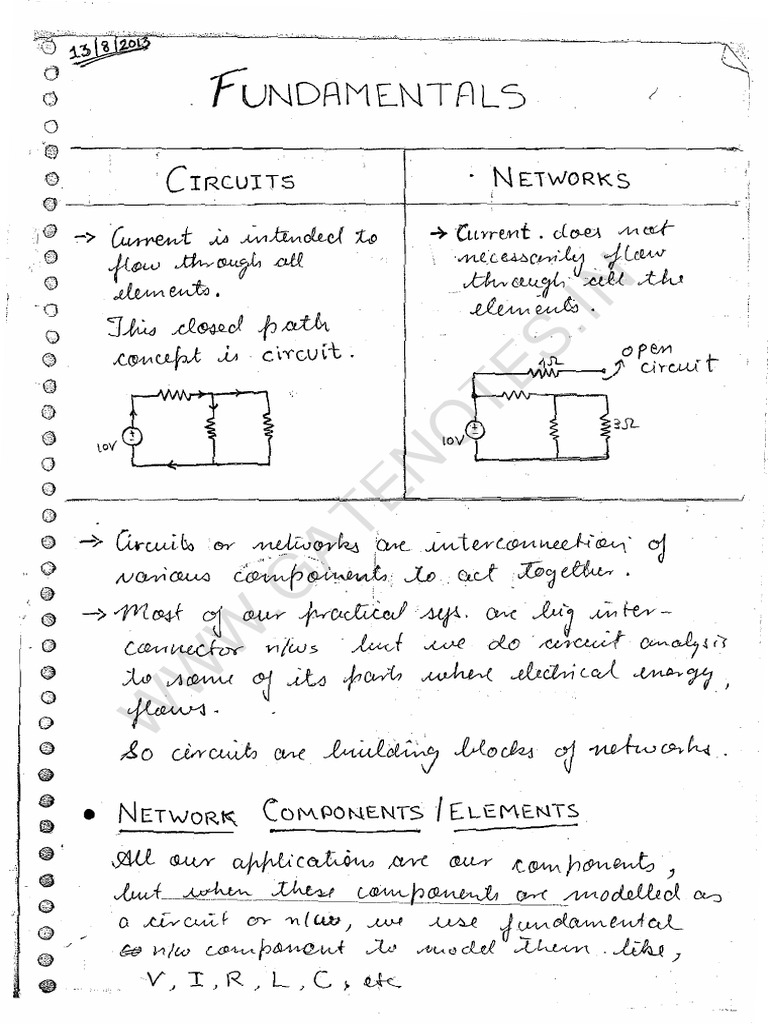 13/8/2013
FUNDAMENTALS
CIRCUITS
→ Current is intended to
flow through all
elements.
This closed path
concept is circuit.
10V
NETWORKS
→ Current does not
necessarily flow
through all the
elements.
1Ω
open
circuit
10V
3Ω
→ Circuits or networks are interconnection of
various components to act together.
→ Most of our practical sys. are big inter-
connector n/ws but we do circuit analysis
to some of its parts where electrical energy
flows.
So circuits are building blocks of networks.
• NETWORK COMPONENTS/ELEMENTS
All our applications are our components,
but when these components are modelled as
a circuit or n/w, we use fundamental
n/w component to model them like,
V, I, R, L, C, etc
WWW.GATENOTES.IN